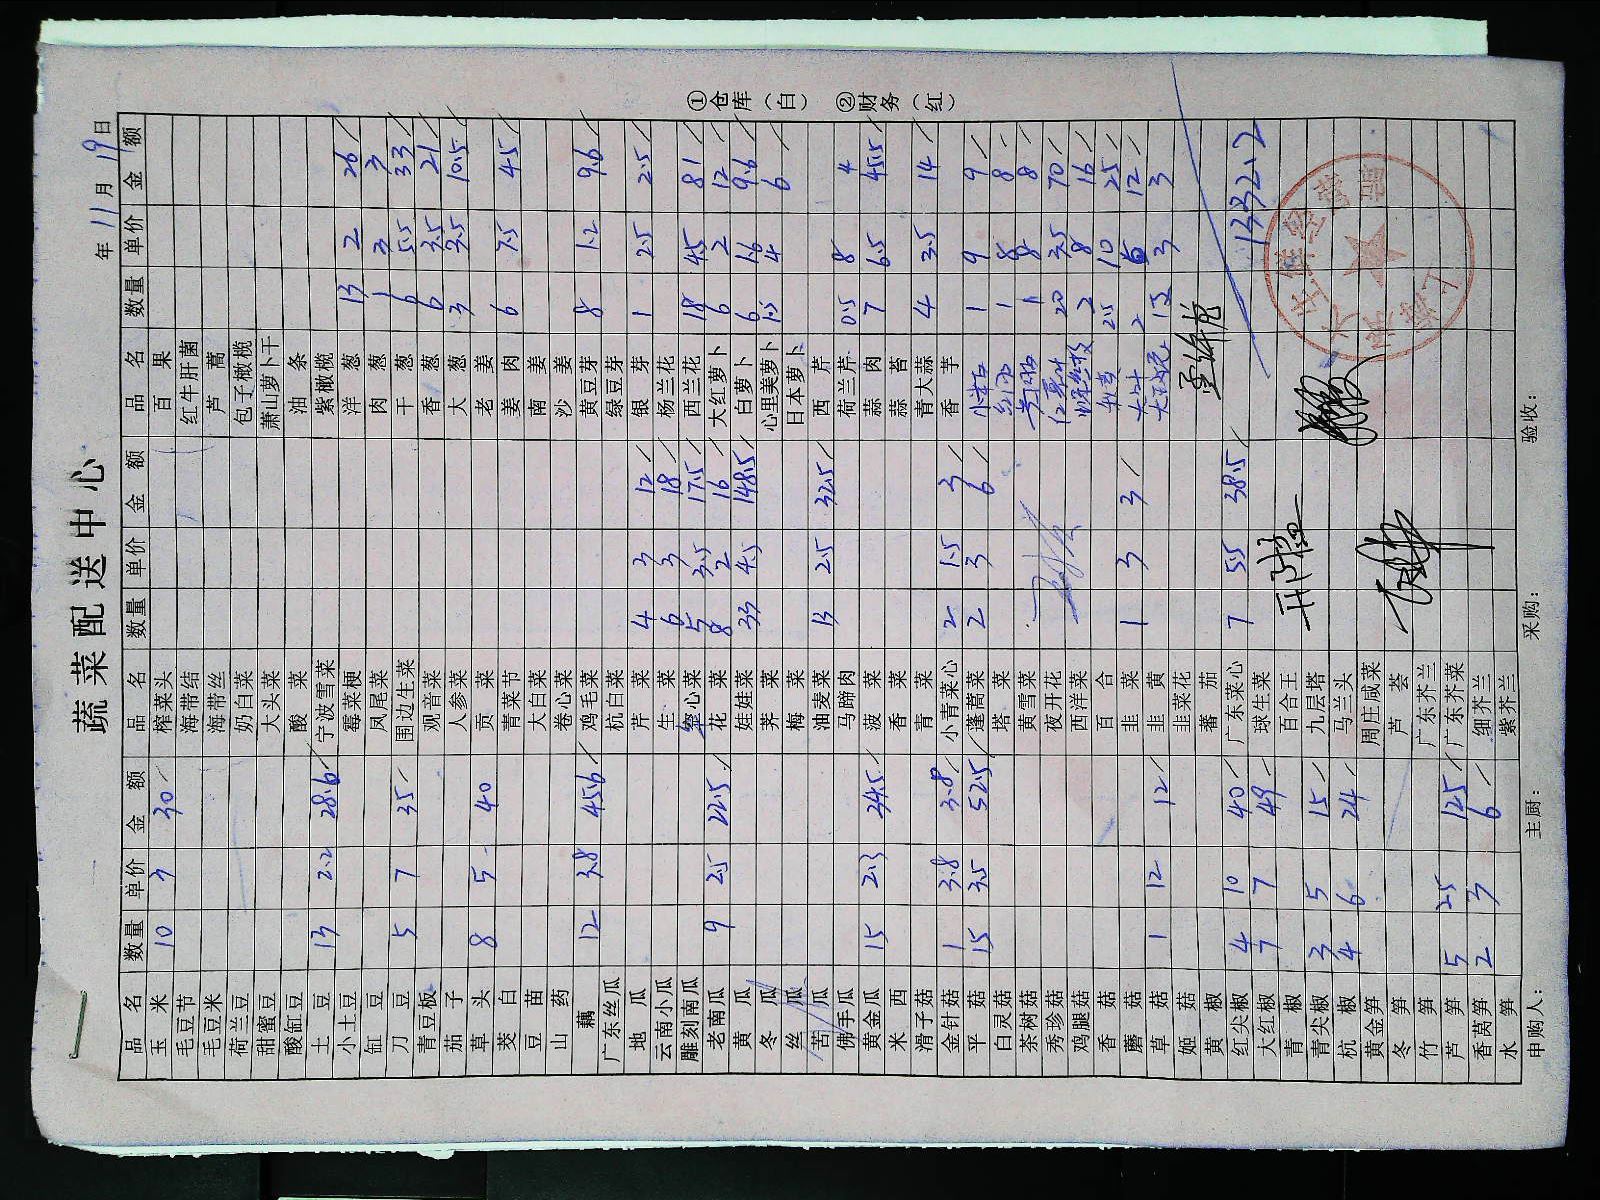 蔬菜配送中心
年 11 月 19 日
品名 数量 单价 金额 品名 数量 单价 金额 品名 数量 单价 金额
玉米 10 3 30 榨菜头 百果
毛豆节 海带结 红牛肝菌
毛豆米 海带丝 芦蒿
荷兰豆 奶白菜 包子橄榄
甜蜜豆 大头菜 萧山萝卜干
酸缸豆 酸菜 油条
土豆 13 2.2 28.6 宁波雪菜 紫橄榄
小土豆 霉菜梗 洋葱 13 2 26
缸豆 凤尾菜 肉葱 1 3 3
刀豆 5 7 35 围边生菜 干葱 6 5.5 33
青豆板 观音菜 香葱 6 3.5 21
茄子 人参菜 大葱 3 3.5 10.5
草头 8 5 40 贡菜 老姜
茭白 青菜节 姜肉 6 7.5 45
豆苗 大白菜 南姜
山药 卷心菜 沙姜
藕 12 3.8 45.6 鸡毛菜 黄豆芽 8 1.2 9.6
广东丝瓜 杭白菜 绿豆芽
地瓜 芹菜 4 3 12 银芽 1 2.5 2.5
云南小瓜 生菜 6 3 18 杨兰花
雕刻南瓜 空心菜 5 3.5 17.5 西兰花 18 4.5 81
老南瓜 9 2.5 22.5 花菜 8 2 16 大红萝卜 6 2 12
黄瓜 娃娃菜 33 4.5 148.5 白萝卜 6 1.6 9.6
冬瓜 荠菜 心里美萝卜 1.5 4 6
丝瓜 梅菜 日本萝卜
苦瓜 油麦菜 13 2.5 32.5 西芹
佛手瓜 马蹄肉 荷兰芹 0.5 8 4
黄金瓜 15 2.3 34.5 菠菜 蒜肉 7 6.5 45.5
米西 香菜 蒜苔
滑子菇 青菜 青大蒜 4 3.5 14
金针菇 1 3.8 3.8 小青菜心 2 1.5 3 香芋
平菇 15 3.5 52.5 蓬蒿菜 2 3 6 1 9 9
白灵菇 塔菜 1 8 8
茶树菇 黄雪菜 1 8 8
秀珍菇 夜开花 20 3.5 70
鸡腿菇 西洋菜 2 8 16
香菇 百合 2.5 10 25
蘑菇 韭菜 1 3 3 2 6 12
草菇 1 12 12 韭黄 3 3
姬菇 韭菜花
黄椒 蕃茄
红尖椒 4 10 40 广东菜心 7 5.5 38.5 1332.2
大红椒 7 7 49 球生菜
青椒 百合王
青尖椒 3 5 15 九层塔
杭椒 4 6 24 马兰头
黄金笋 周庄咸菜
冬笋 芦荟
竹笋 广东芥兰
芦笋 5 25 125 广东芥菜
香莴笋 2 3 6 细芥兰
水笋 紫芥兰
申购人： 主厨： 采购： 验收：
①仓库（白） ②财务（红）